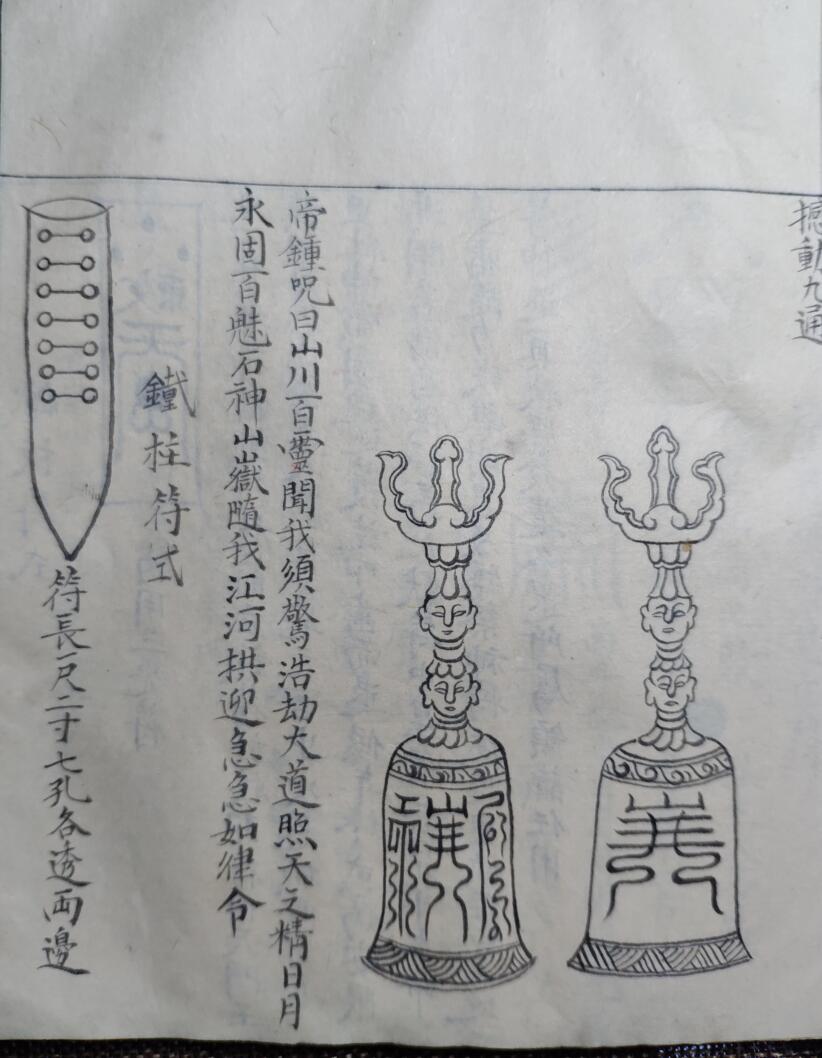 撼動九通
帝鐘呪曰山川百靈聞我須驚浩劫大道照天之精日月
永固百魅石神山嶽隨我江河拱迎急急如律令
鐵柱符式
符長一尺二寸七孔各透兩邊